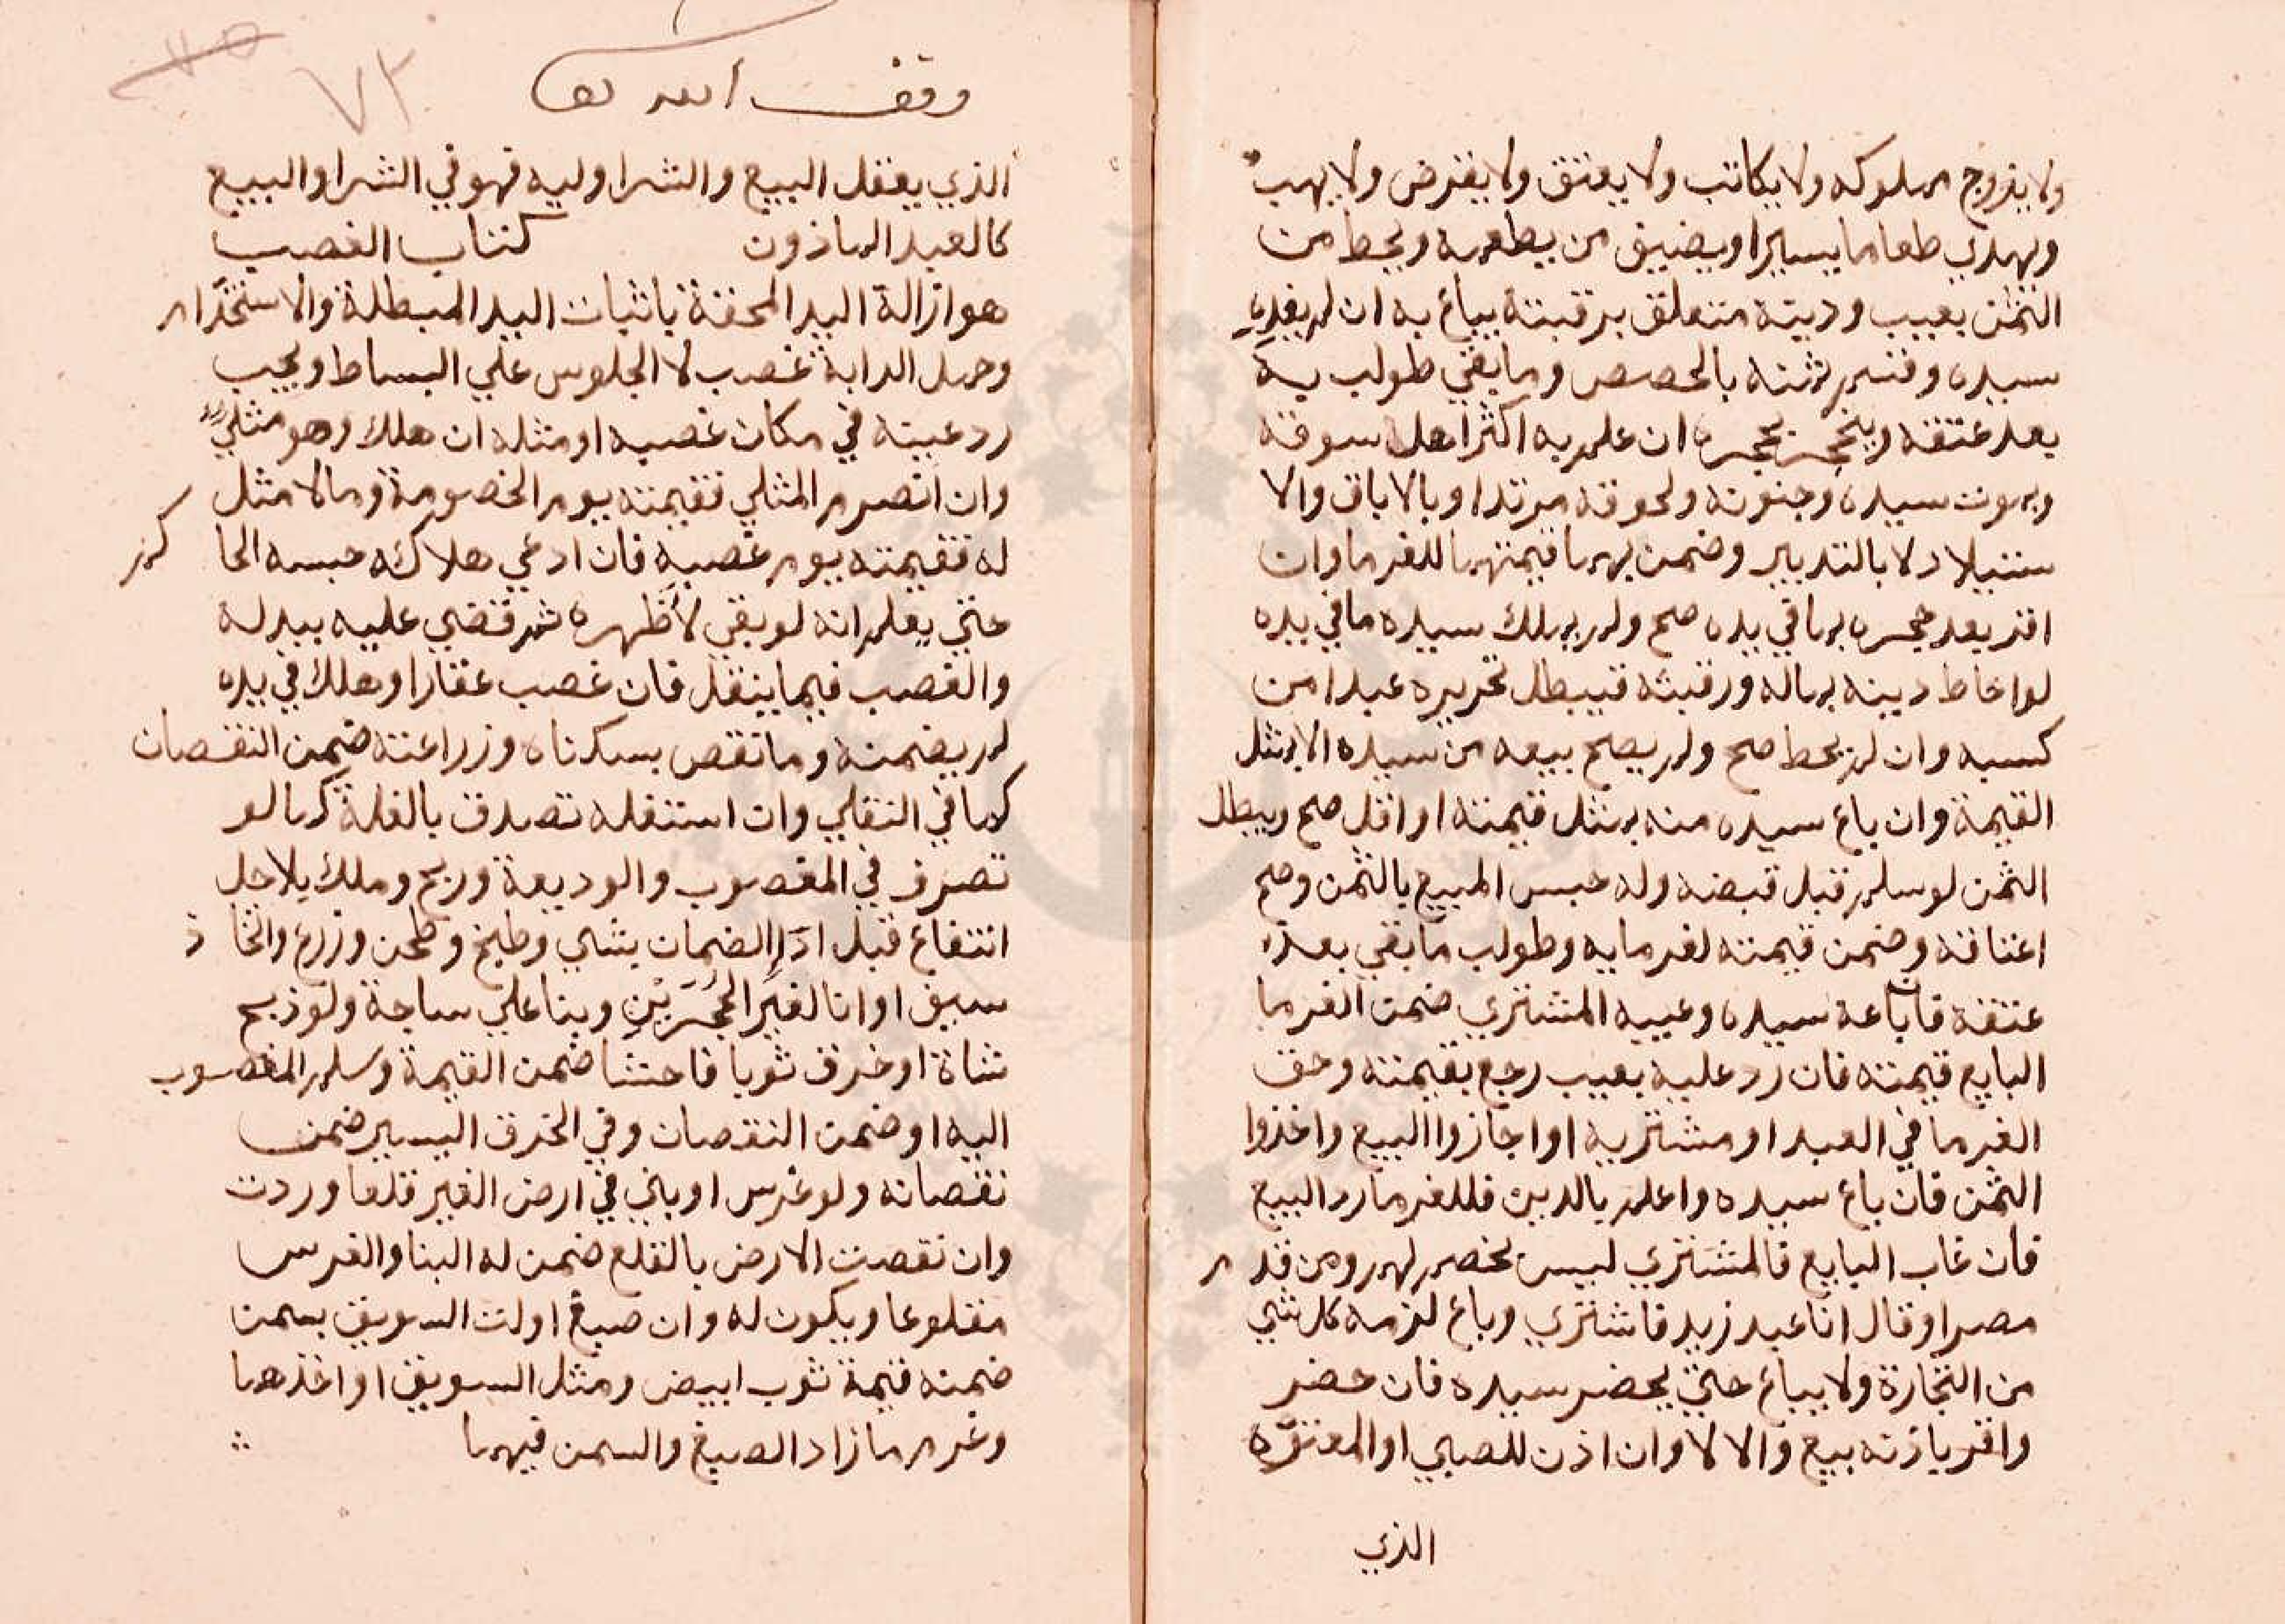 ولا يزوج مملوكه ولا يكاتب ولا يعتق ولا يقرض ولا يهب
ويهدي طعاما يسيرا ويضيف من يطعمه ويحط من
الثمن بعيب ودينه متعلق برقبته يباع به ان لم يفده
سيده وقسم ثمنه بالحصص وما بقي طولب به
بعد عتقه وينحجر بحجره ان علم به اكثر اهل سوقه
وبموت سيده وجنونه ولحوقه مرتدا وبالاباق والا
ستيلاد لا بالتدبير وضمن بهما قيمتهما للغرما وان
اقر بعد حجره بما في يده صح ولم يملك سيده ما في يده
لو احاط دينه بماله ورقبته فيبطل تحريره عبدا من
كسبه وان لم يحط صح ولم يصح بيعه من سيده الا بمثل
القيمة وان باع سيده منه بمثل قيمته او اقل صح ويبطل
الثمن لو سلم قبل قبضه وله حبس المبيع بالثمن وصح
اعتاقه وضمن قيمته لغرمايه وطولب ما بقي بعد
عتقه فان باعه سيده وغيبه المشتري ضمن الغرما
البايع قيمته فان رد عليه بعيب رجع بقيمته وحق
الغرما في العبد او مشتريه او اجازوا البيع واخذوا
الثمن فان باع سيده واعلم بالدين فللغرما رد البيع
فان غاب البايع فالمشتري ليس بخصم لهم ومن قدم
مصرا وقال انا عبد زيد فاشتري وباع لزمه كل شي
من التجارة ولا يباع حتي يحضر سيده فان حضر
واقر باذنه بيع والا لا وان اذن للصبي او المعتوه
الذي
وقف لله تعا
٧٣
٧٥
الذي يعقل البيع والشرا وليه فهو في الشرا والبيع
كالعبد الماذون كتاب الغصب
هو ازالة اليد المحقة باثبات اليد المبطلة والاستخدام
وحمل الدابة غصب لا الجلوس علي البساط ويجب
رد عينه في مكان غصبه او مثله ان هلك وهو مثلي
وان انصرم المثلي فقيمته يوم الخصومة وما لا مثل
له فقيمته يوم غصبه فان ادعي هلاكه حبسه الحاكم
حتي يعلم انه لو بقي لاظهره ثم قضي عليه ببدله
والغصب فيما ينقل فان غصب عقارا وهلك في يده
لم يضمنه وما نقص بسكناه وزراعته ضمن النقصان
كما في النقلي وان استغله تصدق بالغلة كما لو
تصرف في المغصوب والوديعة وربح وملك بلا حل
انتفاع قبل ادا الضمان بشي وطبخ وطحن وزرع واتخاذ
سيف او انا لغير الحجرين وبنا علي ساجة ولو ذبح
شاة او خرق ثوبا فاحشا ضمن القيمة وسلم المغصوب
اليه او ضمن النقصان وفي الخرق اليسير ضمن
نقصانه ولو غرس او بني في ارض الغير قلعا وردت
وان نقصت الارض بالقلع ضمن له البنا والغرس
مقلوعا ويكون له وان صبغ او لت السويق بسمن
ضمنه قيمة ثوب ابيض ومثل السويق او اخذهما
وغرم ما زاد الصبغ والسمن فيهما